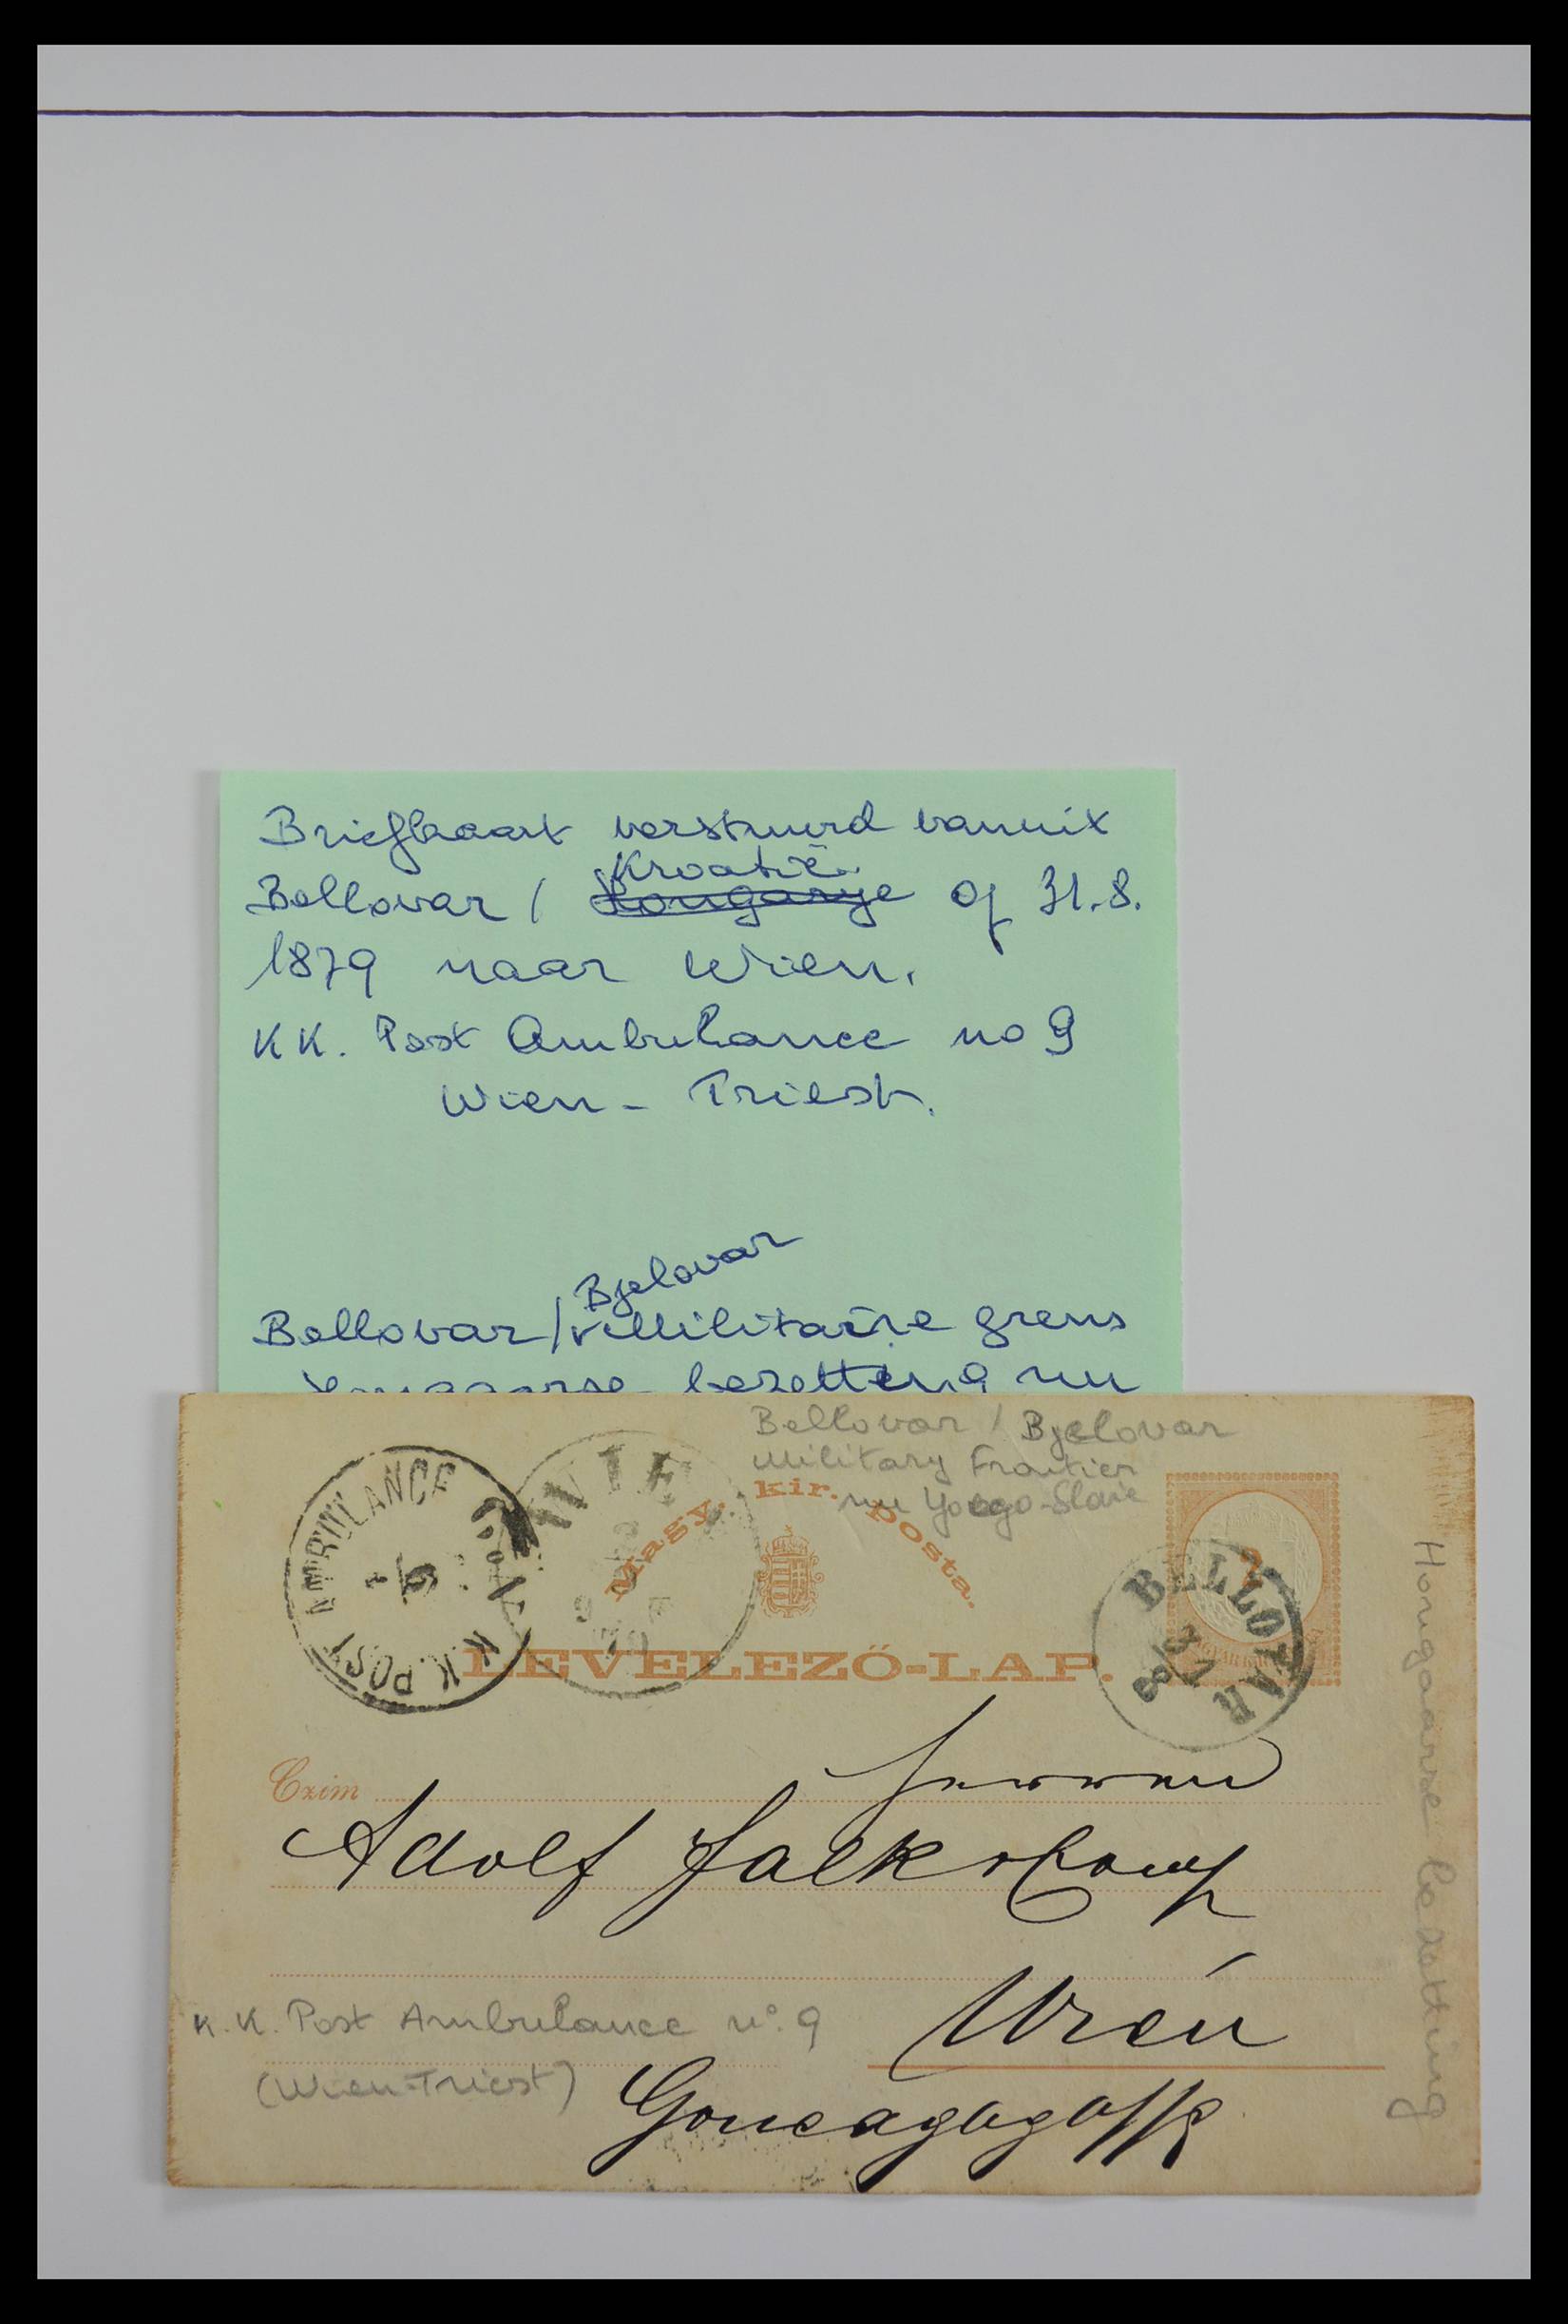 Briefkaart verstuurd vanuit
Kroatië
Bellovar / Hongarye op 31.8.
1879 naar Wien.
KK. Post Ambulance no 9
Wien - Triest.
Bjelovar
Bellovar / Militaire grens
Hongaarse bezetting nu
Bellovar / Bjelovar
Military Frontier
nu Yoego-Slavie
Magy. kir. posta.
LEVELEZŐ-LAP.
K.K. POST AMBULANCE
9
WIE
79
2
BELLOVAR
31/8
Czim
Herren
Adolf Falk & Comp
Wien
K.K. Post Ambulance n°. 9
(Wien-Triest)
Gonzagagasse
Hongaarse bezetting